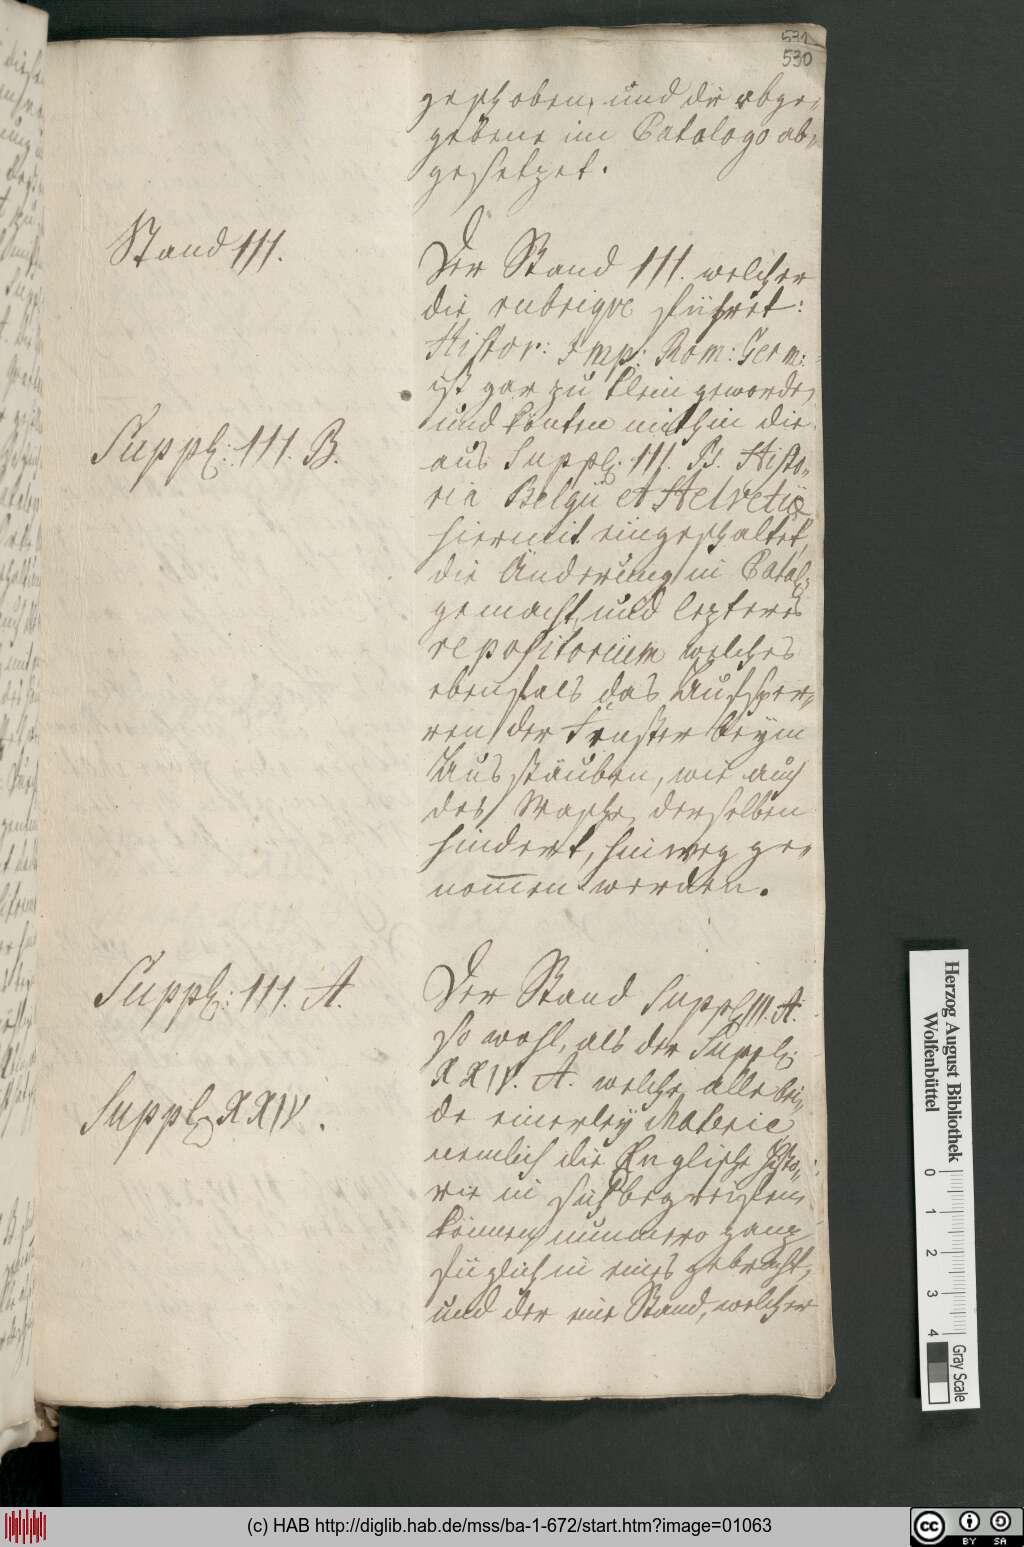 531
530
geschoben, und die abge-
gebene im Catalogo ab-
gesetzet.
Stand III.
Der Stand III. welcher
die rubrique führet:
Histor: Imp: Rom: Germ:
ist gar zu klein geworden
und könten mithin die
Suppl: III. B.
aus Suppl: III. B. Histo-
ria Belgii et Helvetiæ
hiermit eingeschaltet,
die Änderung in Catal:
gemacht, und lezteres
repositorium welches
ebenfals das Aufsper-
ren der Fenster beym
Ausstäuben, wie auch
des Wasche derselben
hindert, hinweg ge-
nommen werden.
Suppl: III. A.
Der Stand Suppl: III. A.
so wohl, als der Suppl:
XXIV. A. welche alle bei-
Suppl: XXIV.
de einerley Materie
nemlich die Englische Histo-
rie in sich begreifen,
können nunmero ganz
füglich in eines gebracht,
und der eine Stand, welcher
Herzog August Bibliothek
Wolfenbüttel
0 1 2 3 4
Gray Scale
(c) HAB http://diglib.hab.de/mss/ba-1-672/start.htm?image=01063
CC BY SA